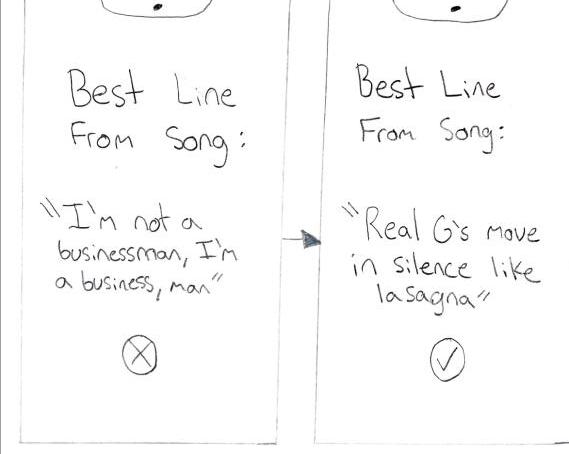 Best Line
From Song:
"I'm not a
businessman, I'm
a business, man"
Best Line
From Song:
"Real G's move
in silence like
lasagna"